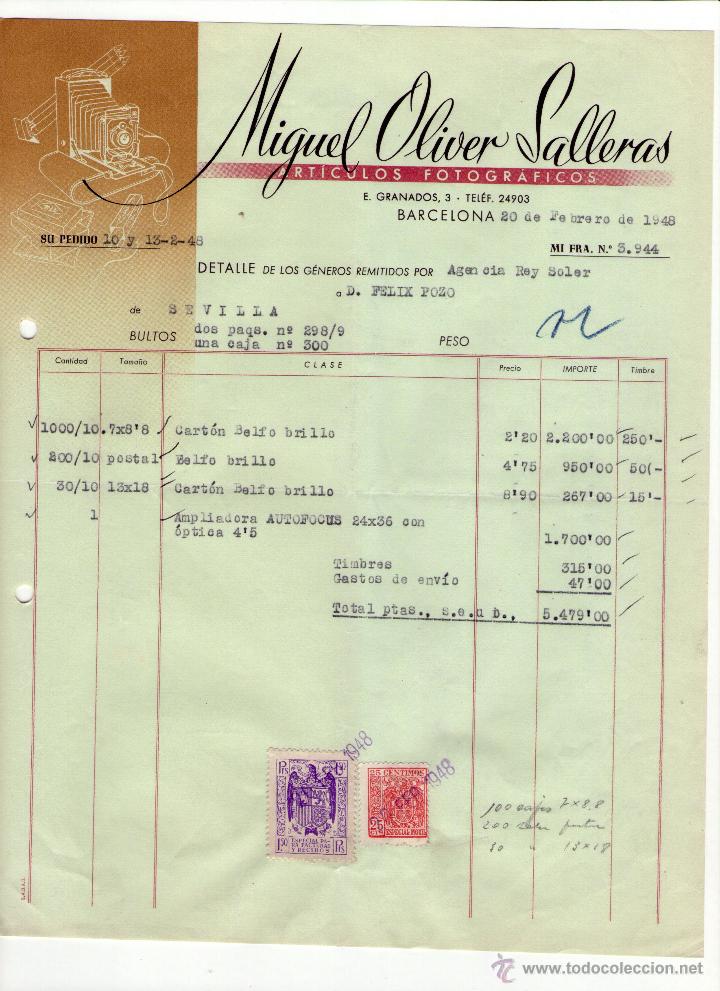 Miguel Oliver Salleras
ARTÍCULOS FOTOGRÁFICOS
E. GRANADOS, 3 - TELÉF. 24903
BARCELONA 20 de Febrero de 1948
SU PEDIDO 10 y 13-2-48
MI FRA. N.º 3.944
DETALLE DE LOS GÉNEROS REMITIDOS POR Agencia Rey Soler
a D. FELIX POZO
de SEVILLA
BULTOS dos paqs. nº 298/9
una caja nº 300
PESO
Cantidad Tamaño CLASE Precio IMPORTE Timbre
1000/10 .7x8'8 Cartón Belfo brillo 2'20 2.200'00 250'-
200/10 postal Belfo brillo 4'75 950'00 50(-
30/10 13x18 Cartón Belfo brillo 8'90 267'00 15'-
1 Ampliadora AUTOFOCUS 24x36 con
óptica 4'5 1.700'00
Timbres 315'00
Gastos de envío 47'00
Total ptas., s.e.u b., 5.479'00
1948
Pts 1,50
ESPECIAL PARA FACTURAS Y RECIBOS
1,50 Pts
1948
25 CENTIMOS
25
ESPECIAL MOVIL
100 cajas 7x8,8
200
30 " 13x18
© www.todocoleccion.net